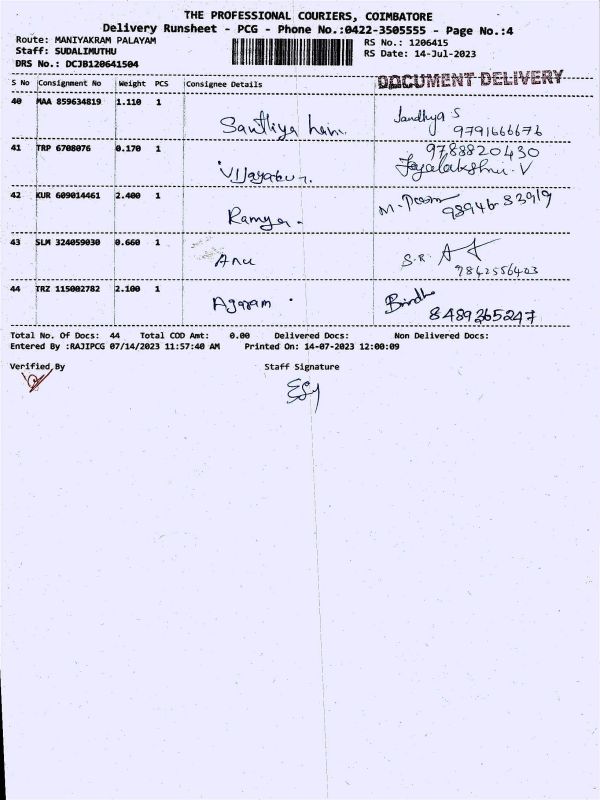 THE PROFESSIONAL COURIERS, COIMBATORE
Delivery Runsheet - PCG - Phone No.:0422-3505555 - Page No.:4
Route: MANIYAKRAM PALAYAM
RS No.: 1206415
Staff: SUDALIMUTHU
RS Date: 14-Jul-2023
DRS No.: DCJB120641504
S No Consignment No Weight PCS Consignee Details DOCUMENT DELIVERY
40 MAA 859634819 1.110 1
Sandhya S
9791666676
41 TRP 6708076 0.170 1
9788820430
Jayalakshmi. V
42 KUR 609014461 2.400 1 Ramya.
43 SLM 324059030 0.660 1 Anu S.R.
9842556403
44 TRZ 115002782 2.100 1 Agaram Brindha
8489265247
Total No. Of Docs: 44 Total COD Amt: 0.00 Delivered Docs: Non Delivered Docs:
Entered By :RAJIPCG 07/14/2023 11:57:40 AM Printed On: 14-07-2023 12:00:09
Verified By Staff Signature